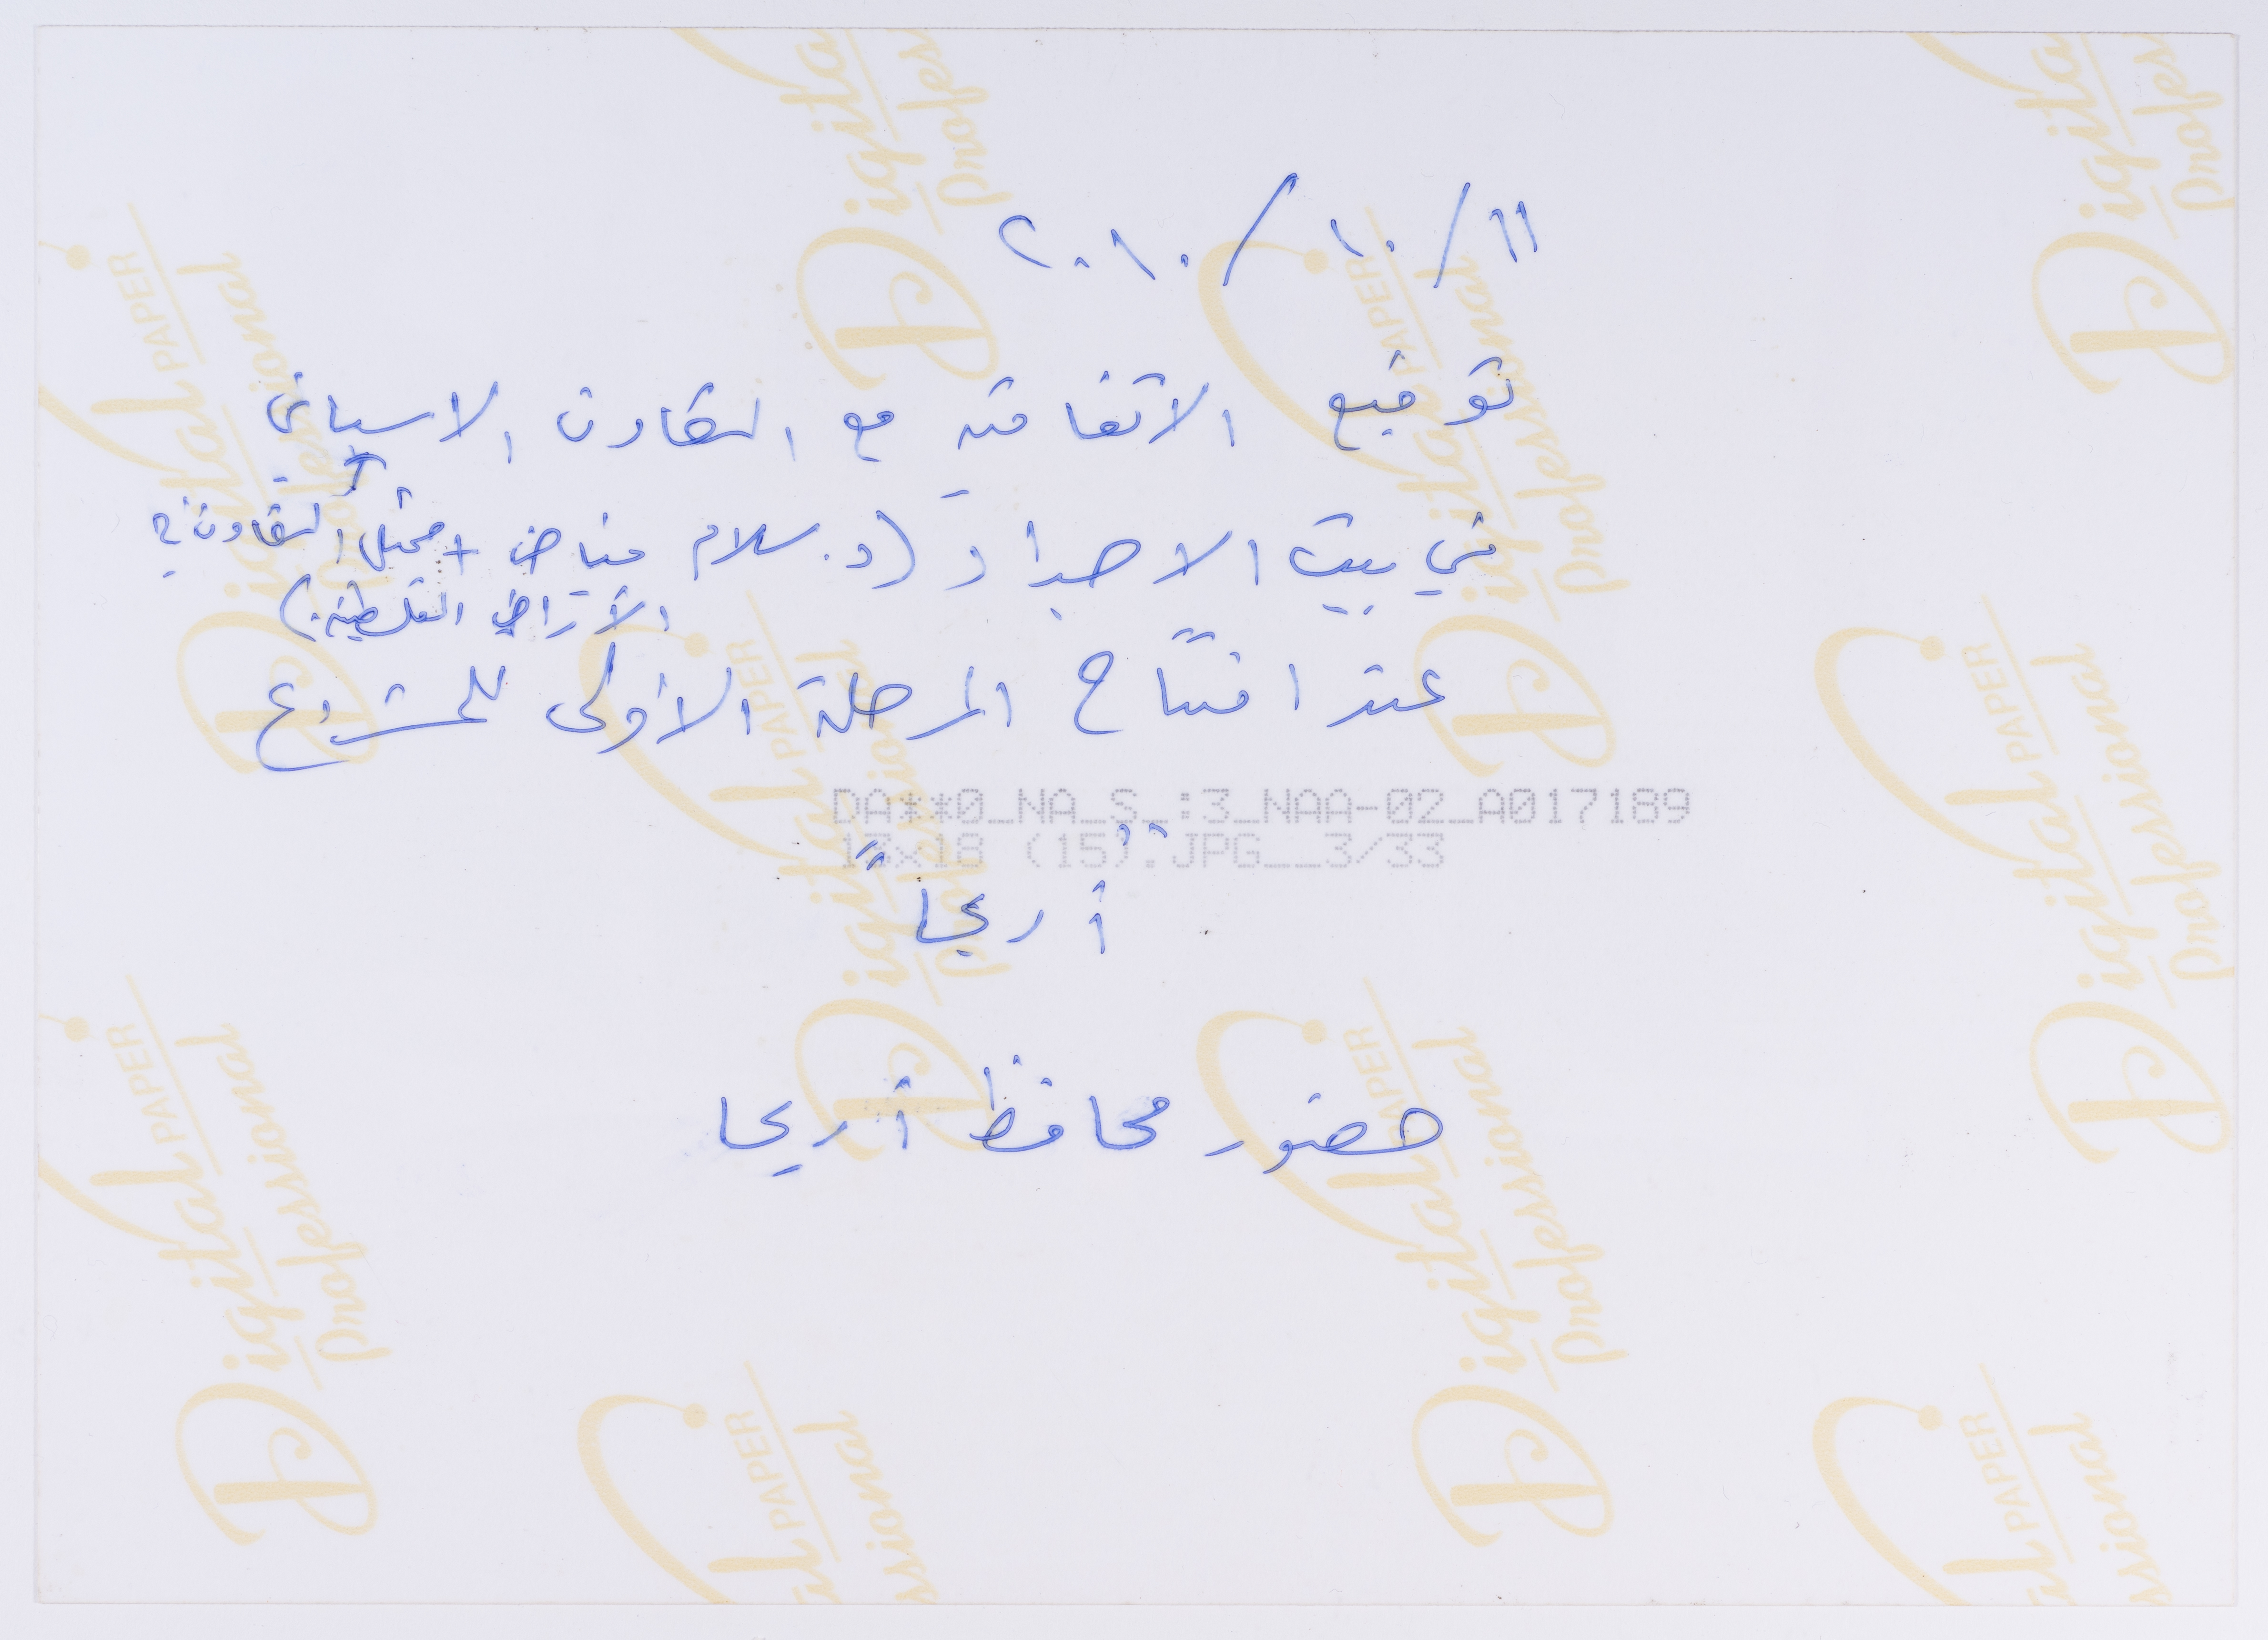 ١١/ ١٠ / ٢٠١٠
توقيع الاتفاقية مع التعاون الاسباني
في بيت الاجداد (د. سلام فياض + ممثل التعاون في
الأراضي الفلسطينية)
عند افتتاح المرحلة الأولى للمشروع
DA**0_NA_S_:3_NAA-02_A017189
13x18 (15).JPG__3/33
" أريحا "
حضور محافظ أريحا
Digital PAPER
Professional